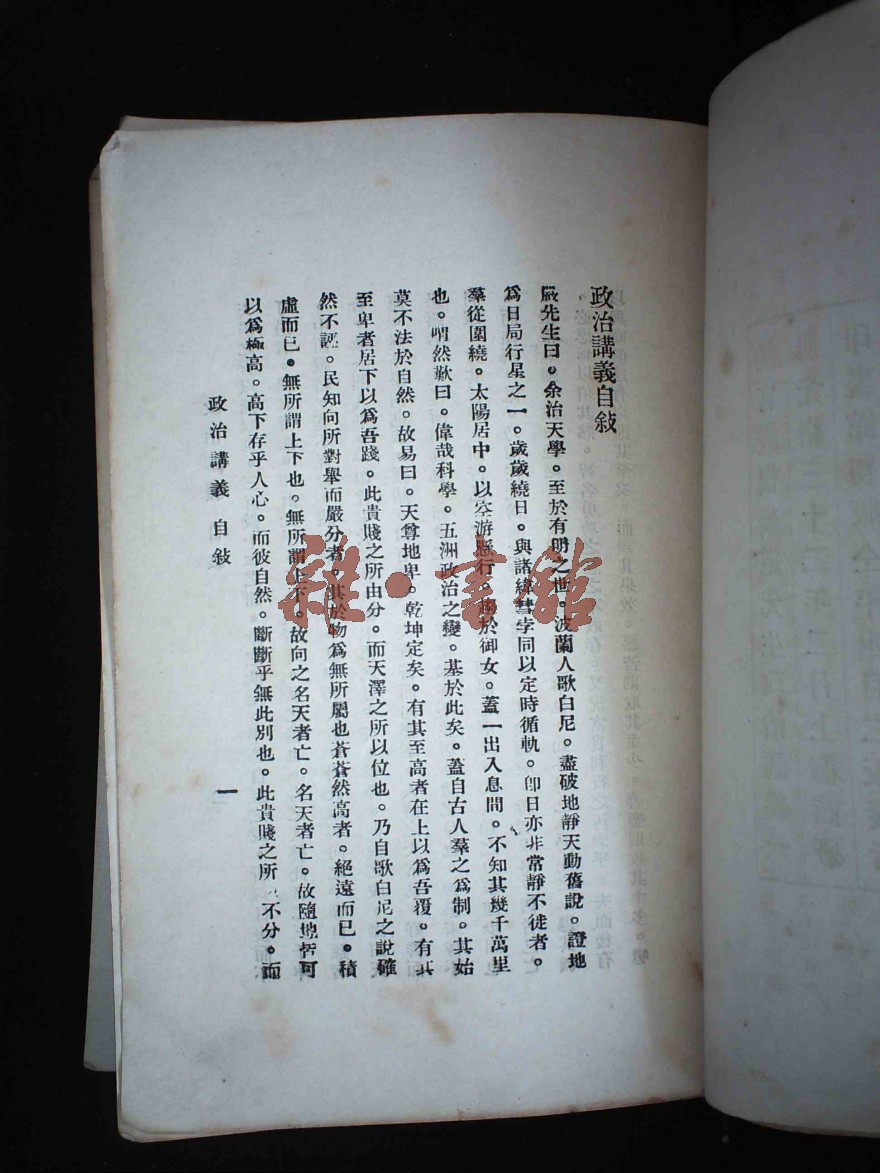 政治講義自敍
嚴先生曰。余治天學。至於有明之世。波蘭人歌白尼。盡破地靜天動舊說。證地
爲日局行星之一。歲歲繞日。與諸緯彗孛同以定時循軌。卽日亦非常靜不徙者。
羣從圍繞。太陽居中。以空游 行。 於御女。蓋一出入息間。不知其幾千萬里
也。喟然歎曰。偉哉科學。五洲政治之變。基於此矣。蓋自古人羣之爲制。其始
莫不法於自然。故易曰。天尊地卑。乾坤定矣。有其至高者在上以爲吾覆。有其
至卑者居下以爲吾踐。此貴賤之所由分。而天澤之所以位也。乃自歌白尼之說確
然不誣。民知向所對舉而嚴分者。其於物爲無所屬也蒼蒼然高者。絕遠而已。積
虛而已。無所謂上下也。無所謂上下。故向之名天者亡。名天者亡。故隨地皆可
以爲極高。高下存乎人心。而彼自然。斷斷乎無此別也。此貴賤之所 不分。而
政治講義 自敍
一
雜·書館